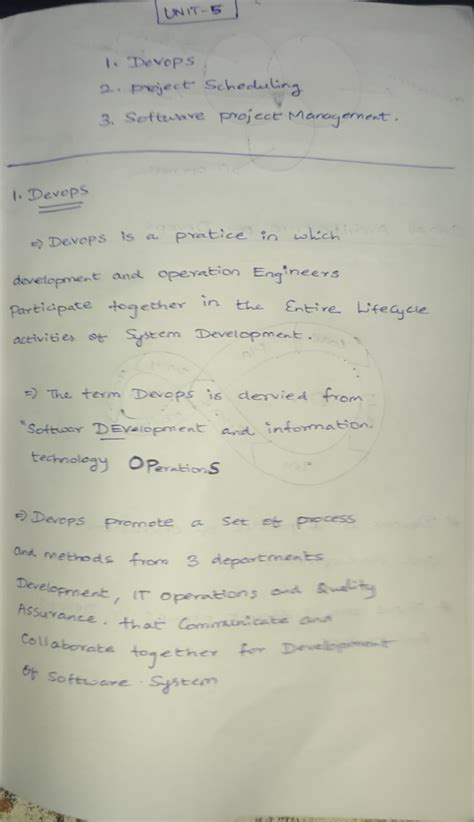 UNIT-5
1. Devops
2. project Scheduling
3. Software project Management.
1. Devops
⇒ Devops is a pratice in which
development and operation Engineers
Participate together in the Entire Lifecycle
activities of System Development.
⇒ The term Devops is dervied from
"Softwar DEvelopment and information
technology OPerationS
⇒ Devops promote a set of process
and methods from 3 departments
Development, IT operations and Quality
Assurance. that Communicate and
Collaborate together for Development
of software System